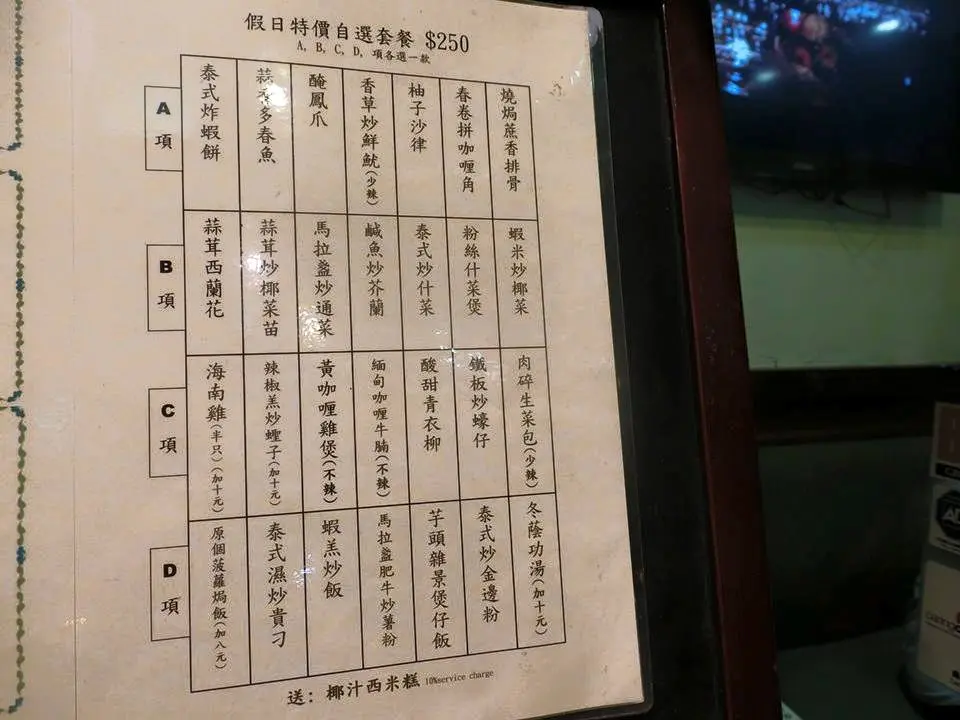 假日特價自選套餐 $250
A, B, C, D, 項各選一款
A項
燒焗蔗香排骨
春卷拼咖喱角
柚子沙律
香草炒鮮魷(少辣)
醃鳳爪
蒜香多春魚
泰式炸蝦餅
B項
蝦米炒椰菜
粉絲什菜煲
泰式炒什菜
鹹魚炒芥蘭
馬拉盞炒通菜
蒜茸炒椰菜苗
蒜茸西蘭花
C項
肉碎生菜包(少辣)
鐵板炒蠔仔
酸甜青衣柳
緬甸咖喱牛腩(不辣)
黃咖喱雞煲(不辣)
辣椒羔炒蟶子(加十元)
海南雞(半只)(加十元)
D項
冬蔭功湯(加十元)
泰式炒金邊粉
芋頭雜景煲仔飯
馬拉盞肥牛炒薯粉
蝦羔炒飯
泰式濕炒貴刁
原個菠蘿焗飯(加八元)
送: 椰汁西米糕 10%service charge